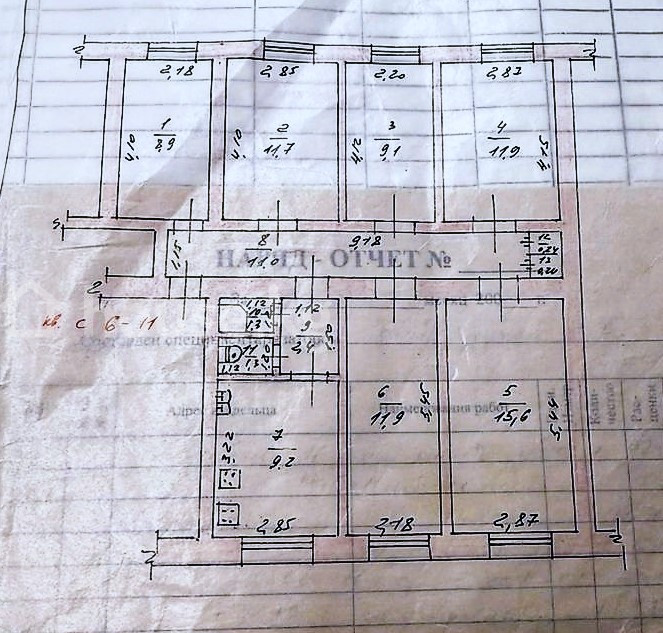 2,18
2,85
2,20
2,87
1
8,9
4,10
2
11,7
4,10
3
9,1
4,12
4
11,9
4,15
8
11,0
9,18
1,15
12
0,24
13
0,20
НАРЯД - ОТЧЕТ №
кв. с 6-11
1,12
10
1,3
1,12
9
2,4
11
1,3
1,12
Адрес владельца
Наименования работ
6
11,9
5,45
5
15,6
5,45
3,22
7
9,2
2,85
2,18
2,87